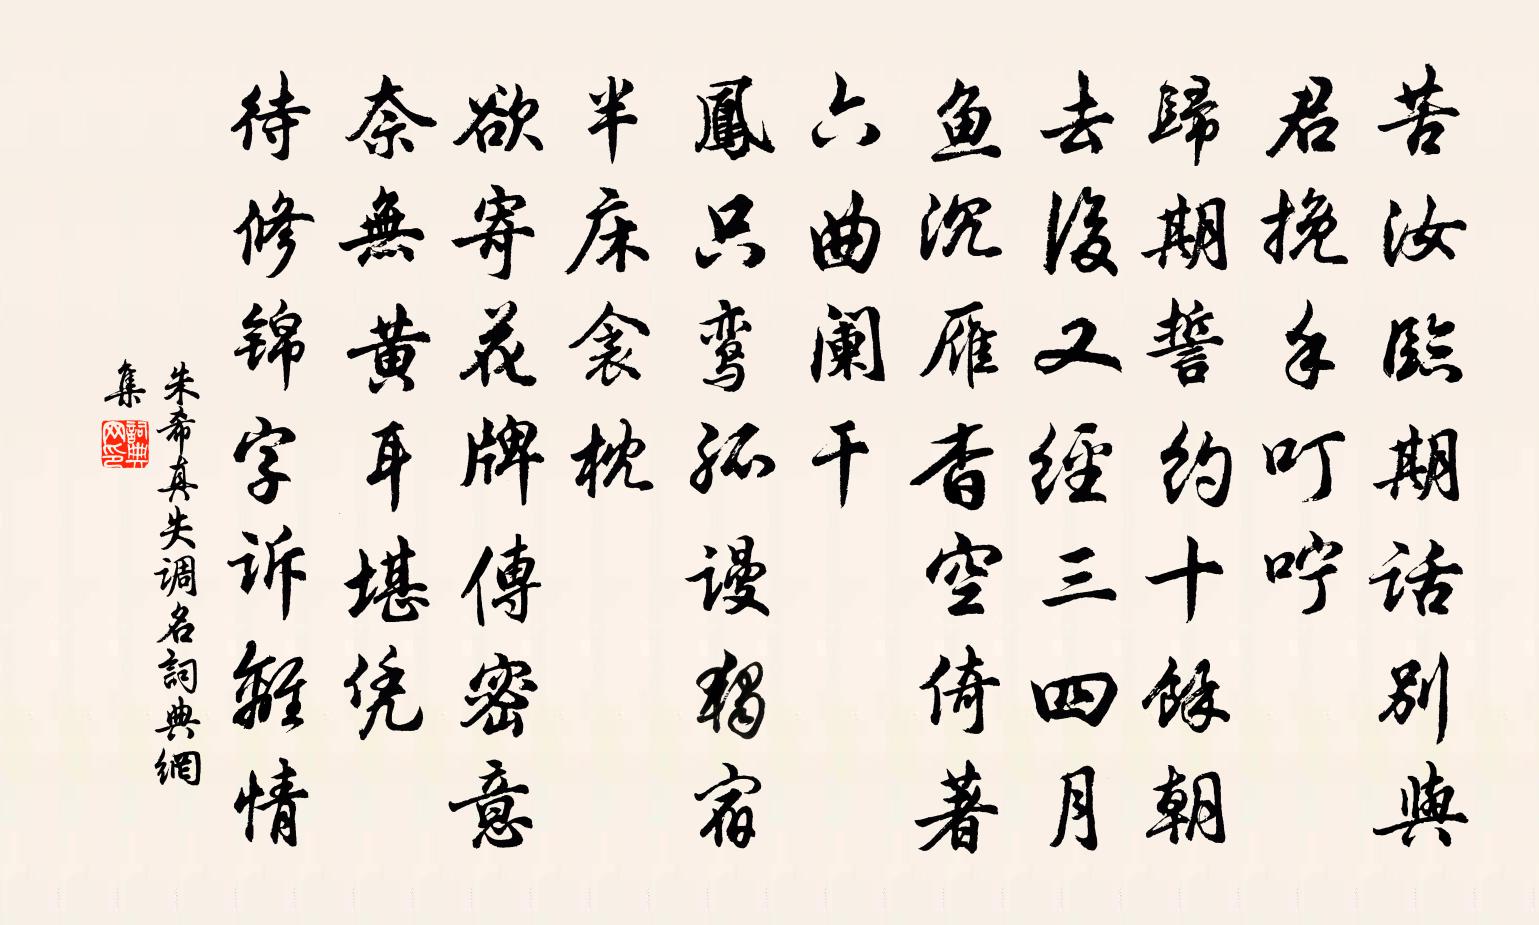 苦汝臨期話別與
君挽手叮咛
歸期誓约十餘朝
去後又經三四月
鱼沉雁杳空倚著
六曲阑干
鳳只鸾孤谩獨宿
半床衾枕
欲寄花牌傳密意
奈無黄耳堪凭
待修锦字诉離情
朱希真失调名詞典網
集
詞典
网印